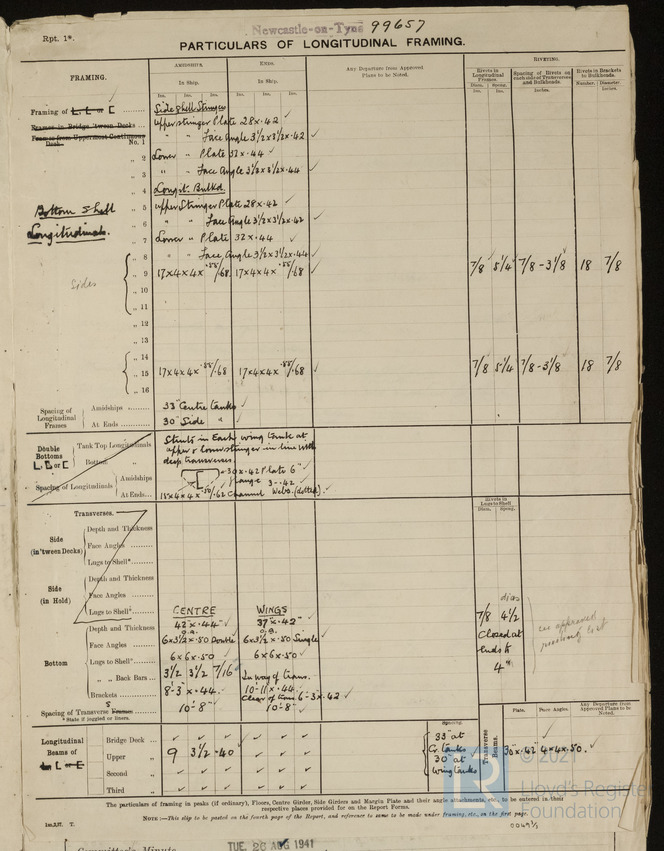 Rpt. 1*.
Newcastle-on-Tyne 99657
PARTICULARS OF LONGITUDINAL FRAMING.
FRAMING.
AMIDSHIPS.
ENDS.
In Ship.
In Ship.
Any Departure from Approved Plans to be Noted.
RIVETING.
Rivets in Longitudinal Frames.
Spacing of Rivets on each side of Transverses and Bulkheads.
Rivets in Brackets to Bulkheads.
Ins. Ins. Ins. Ins. Ins. Ins.
Diam. Ins. Spcng. Ins.
Inches.
Number. Diameter. Inches.
Framing of L, L or [
Side Shell Stringers
Frames in Bridge 'tween Decks
Upper stringer Plate 28 x .42 ✓
Frames from Uppermost Continuous Deck No. 1
" " Face Angle 3½ x 3½ x .42 ✓
" 2 Lower " Plate 32 x .44 ✓
" 3 " " Face Angle 3½ x 3½ x .44 ✓
" 4 Longt. Bulkd
Bottom Shell Longitudinals.
" 5 Upper Stringer Plate 28 x .42 ✓
" 6 " " Face Angle 3½ x 3½ x .42 ✓
" 7 Lower " Plate 32 x .44 ✓
" 8 " " Face Angle 3½ x 3½ x .44 ✓
Sides
" 9 17 x 4 x 4 x .68 17 x 4 x 4 x .68 ✓ 7/8 5¼ 7/8 - 3 1/8 18 7/8
" 10
" 11
" 12
" 13
" 14
" 15 17 x 4 x 4 x .68 17 x 4 x 4 x .68 ✓ 7/8 5¼ 7/8 - 3 1/8 18 7/8
" 16
Spacing of Longitudinal Frames
Amidships 33" Centre tanks
At Ends 30" Side "
Double Bottoms L, L or [
Tank Top Longitudinals
Bottom "
Struts in Each wing tank at
upper & lower stringer in line with
deep transverses
Spacing of Longitudinals
Amidships
30 x .42 Plate 6"
flange
At Ends
Channel Webs. (dotted). ✓
Transverses.
Rivets in Lugs to Shell
Diam. Spcng.
Side (in 'tween Decks)
Depth and Thickness
Face Angles
Lugs to Shell*
Side (in Hold)
Depth and Thickness
Face Angles
Lugs to Shell*
CENTRE WINGS
Bottom
Depth and Thickness 42" x .44" ✓ 37" x .42" ✓
Face Angles 6 x 3½ x .50 Double 6 x 3½ x .50 Single ✓
Lugs to Shell* 6 x 6 x .50 ✓ 6 x 6 x .50 ✓
" " Back Bars 3½ 3½ 7/16 In way of trans.
Brackets 8-3 x .44 ✓ 10-11 x .44
Spacing of Transverse Frames 10'-8" ✓ 10'-8" ✓
* State if joggled or liners.
dias
7/8 4½
Closed at
ends to
4"
see approved
Longitudinal Beams of L, L or [
Bridge Deck
Upper " 9 3½ .40
Second "
Third "
Spacing.
33" at
Cr. tanks
30" at
wing tanks
Transverse Beams.
Plate. Face Angles.
Any Departure from Approved Plans to be Noted.
30" x .42" 4 x 4 x .50. ✓
The particulars of framing in peaks (if ordinary), Floors, Centre Girder, Side Girders and Margin Plate and their angle attachments, etc., to be entered in their
respective places provided for on the Report Forms.
NOTE:—This slip to be posted on the fourth page of the Report, and reference to same to be made under framing, etc., on the first page.
© 2021
Lloyd's Register
Foundation
TUE. 26 AUG 1941
Committee's Minute